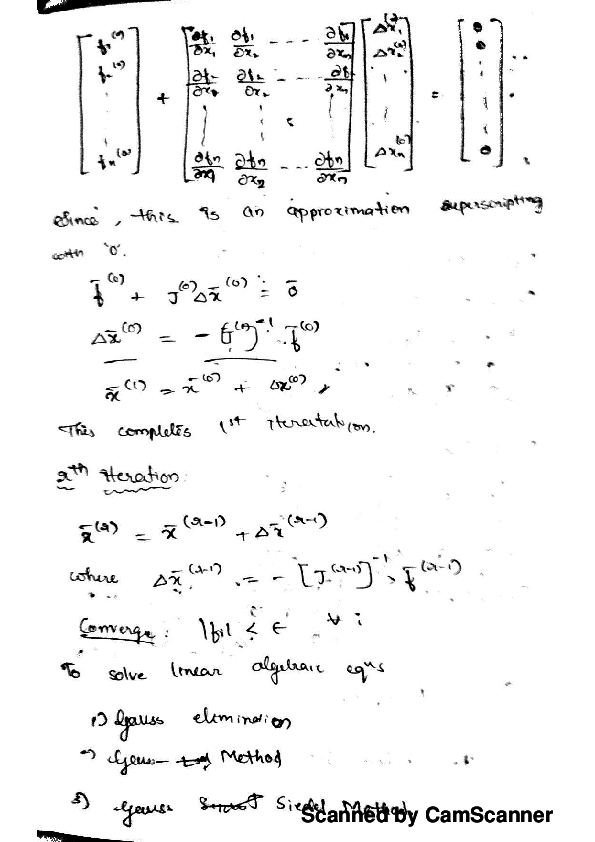 [f₁⁽⁰⁾ f₂⁽⁰⁾ ⋮ fₙ⁽⁰⁾] + [∂f₁/∂x₁ ∂f₁/∂x₂ --- ∂f₁/∂xₙ; ∂f₂/∂x₁ ∂f₂/∂x₂ --- ∂f₂/∂xₙ; ⋮ ⋮; ∂fₙ/∂x₁ ∂fₙ/∂x₂ --- ∂fₙ/∂xₙ] [Δx₁⁽⁰⁾ Δx₂⁽⁰⁾ ⋮ Δxₙ⁽⁰⁾] = [0 0 ⋮ 0]
Since, this is an approximation superscripting
with '0'.
f̄⁽⁰⁾ + J⁽⁰⁾Δx̄⁽⁰⁾ = 0̄
Δx̄⁽⁰⁾ = -[J⁽⁰⁾]⁻¹ f̄⁽⁰⁾
x̄⁽¹⁾ = x̄⁽⁰⁾ + Δx⁽⁰⁾,
This completes 1st iteration.
rth iteration:
x̄⁽ʳ⁾ = x̄⁽ʳ⁻¹⁾ + Δx̄⁽ʳ⁻¹⁾
where Δx̄⁽ʳ⁻¹⁾ = -[J⁽ʳ⁻¹⁾]⁻¹ f̄⁽ʳ⁻¹⁾
Converge: |fi| < ϵ ∀ i
To solve linear algebraic eqns
1) Gauss elimination
Method
3) Gauss Siedel Method
Scanned by CamScanner